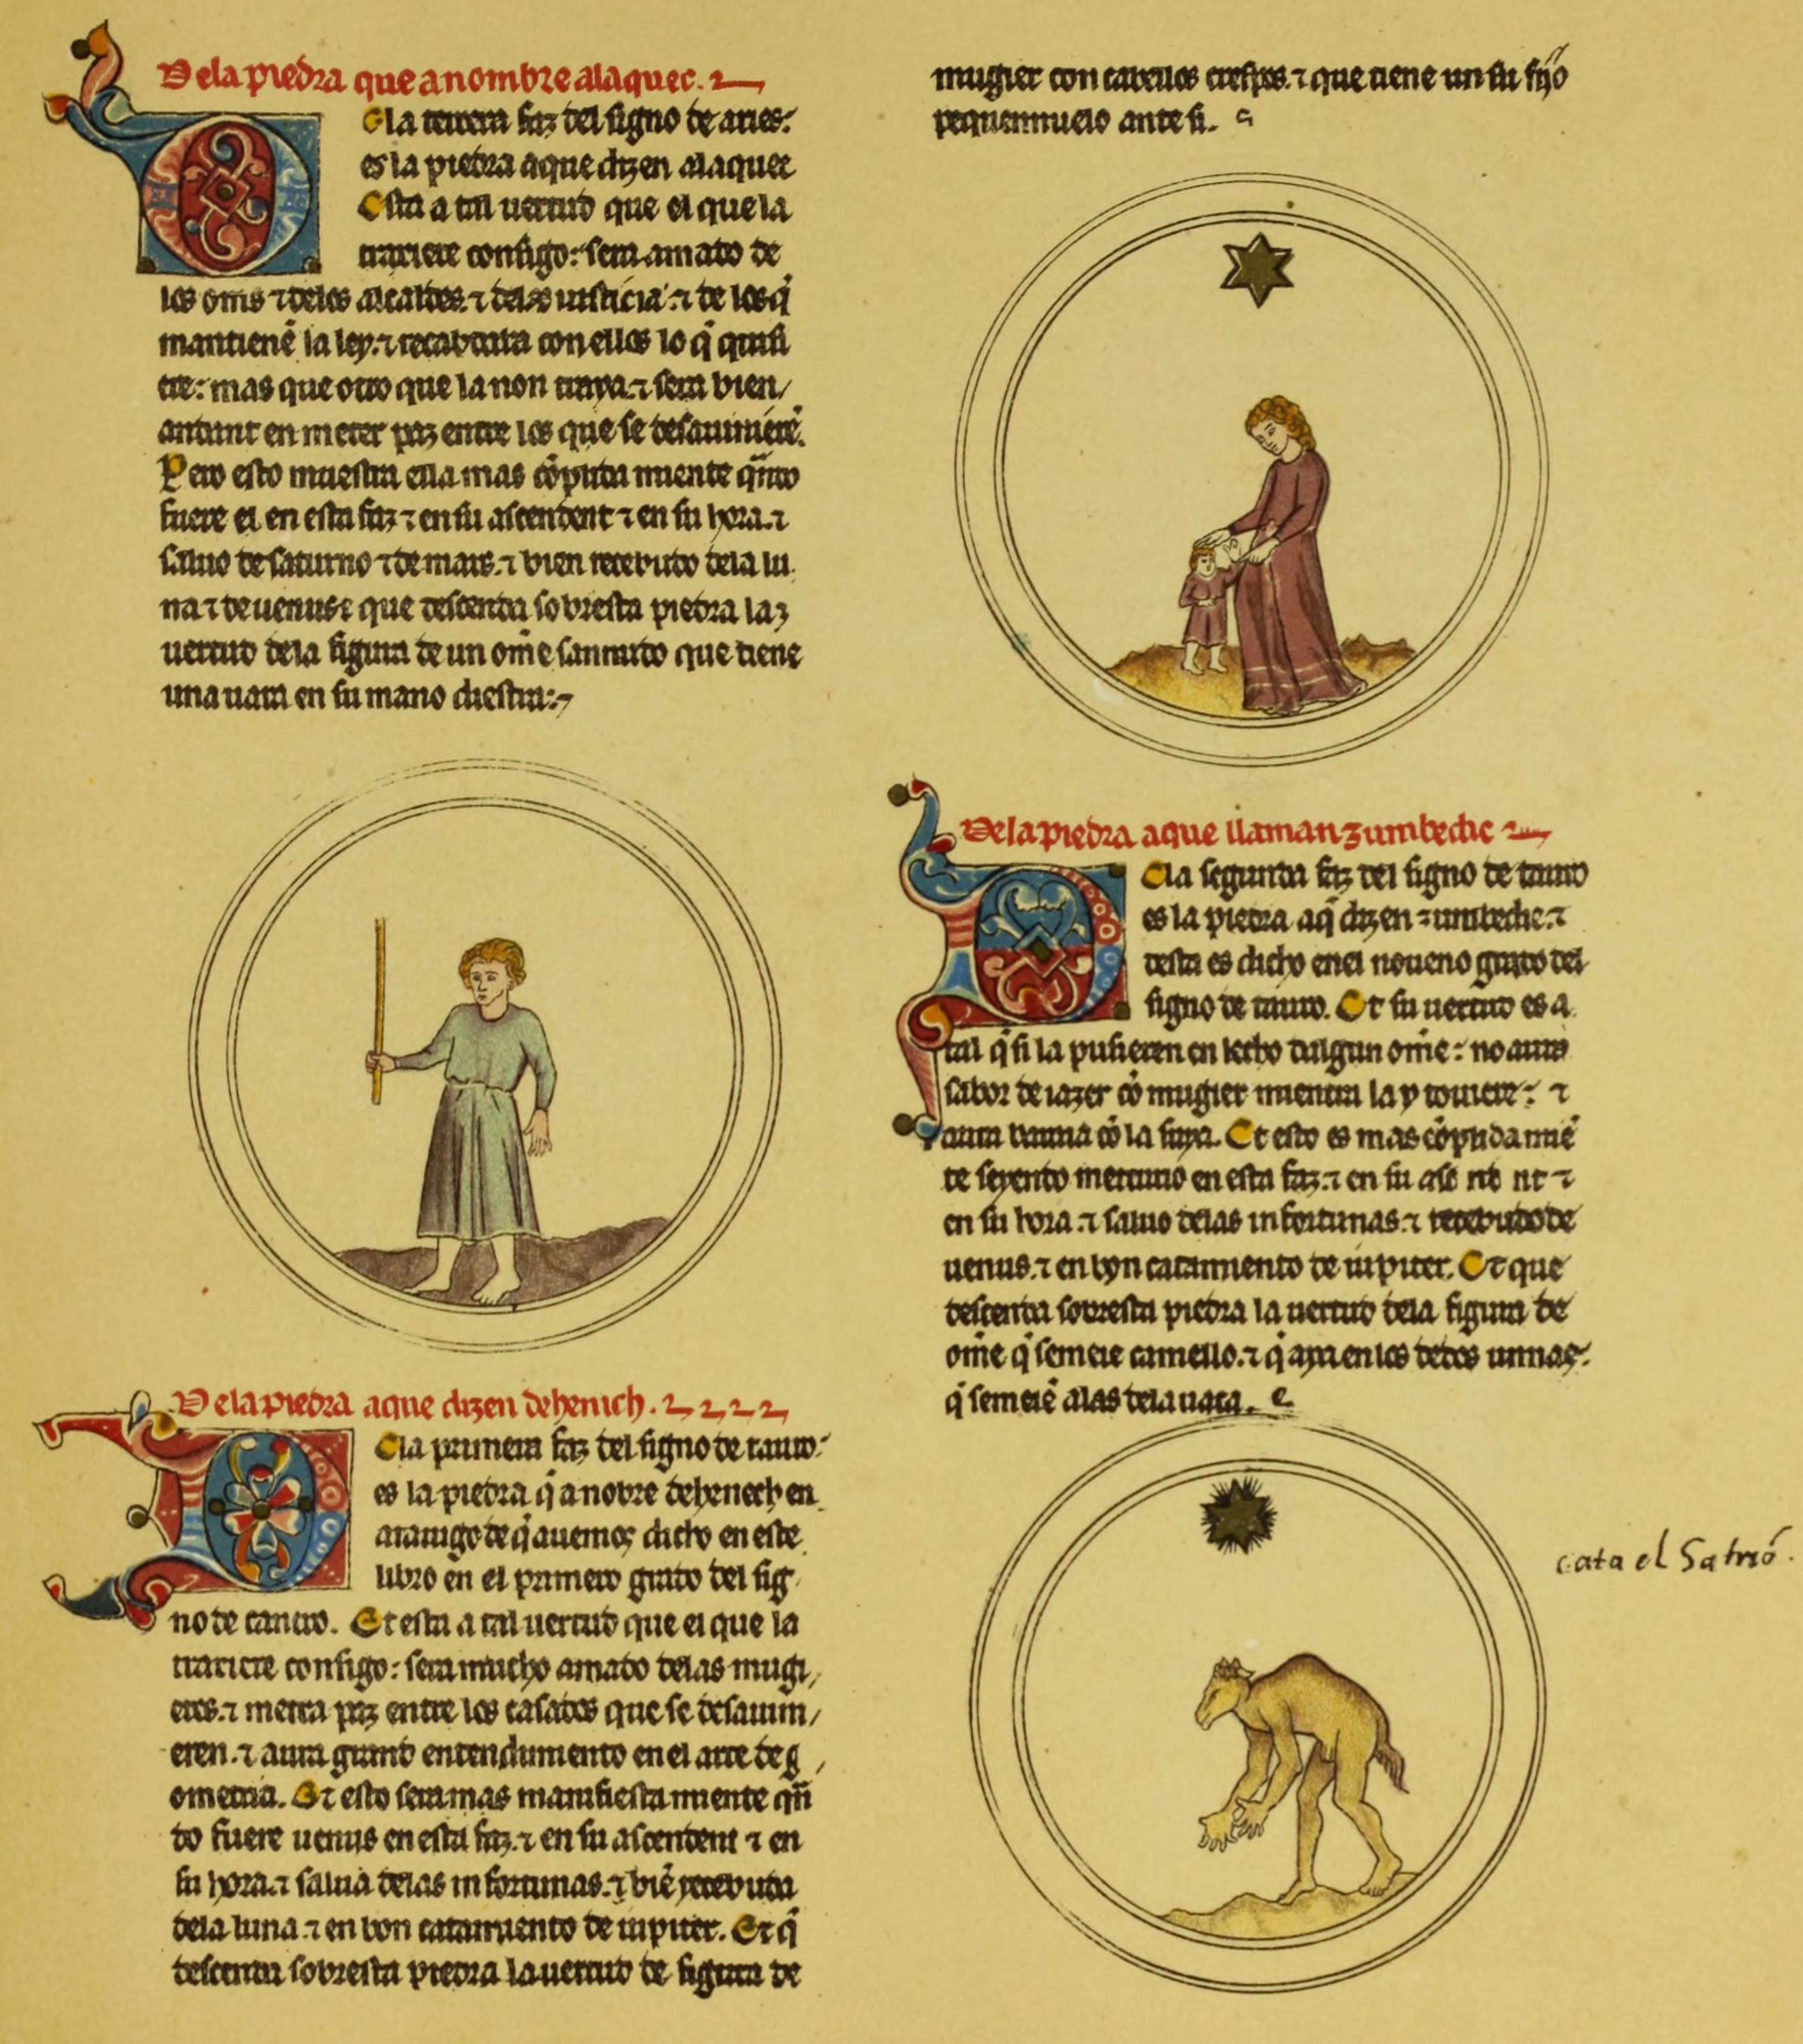 Dela piedra que a nombre alaquec.
Ela tercera faz del signo de aries:
es la piedra aque dizen alaquec
Esta a tal uertud que el que la
troxiere consigo: sera amado de
los om̄s ⁊ delos alcaldes. ⁊ delas iusticia ⁊ de los q̄
mantienē la ley. ⁊ recabdara con ellos lo q̄ quisi
ere: mas que otro que la non traya. ⁊ sera bien
andant en meter paz entre los que se desauinierē.
Pero esto muestra ella mas cōplida miente q̄ndo
fuere el en esta faz ⁊ en su ascendent ⁊ en su hora. ⁊
saluo de saturno ⁊ de mars. ⁊ bien recebudo dela lu
na ⁊ de uenus que descenda sobresta piedra la
uertud dela figura de un om̄e sannudo que tiene
una uara en su mano diestra:
Dela piedra aque dizen dehenich.
Ela primera faz del signo de tauro:
es la piedra q̄ a nobre dehenech en
arauigo de q̄ auemos dicho en este
libro en el primero grado del sig
no de tauro. Et esta a tal uertud que el que la
troxiere consigo: sera mucho amado delas mugi
eres. ⁊ metra paz entre los casados que se desauini
eren. ⁊ aura grand entendimiento en el arte de g
ometria. Et esto sera mas manifiesta miente q̄n
do fuere uenus en esta faz. ⁊ en su ascendent ⁊ en
su hora. ⁊ salua delas infortunas. ⁊ biē recebuda
dela luna. ⁊ en bon catamiento de iupiter. Et q̄
descenda sobresta piedra la uertud de figura de
mugier con cabellos crespos. ⁊ que tiene un su fijo
pequennuelo ante si.
Dela piedra aque llaman zumbedic
Ela segunda faz del signo de tauro
es la piedra aq̄ dizen zumbedic. ⁊
desta es dicho enel noueno grado del
signo de tauro. Et su uertud es a
tal q̄ si la pusieren en lecho dalgun om̄e: no aura
sabor de iazer cō mugier mientra la y touiere: ⁊
aura danna cō la suya. Et esto es mas cōplida mie
te seyendo mercurio en esta faz. ⁊ en su ascendent ⁊
en su hora. ⁊ saluo delas infortunas. ⁊ recebudo de
uenus. ⁊ en byn catamiento de iupiter. Et que
descenda sobresta piedra la uertud dela figura de
om̄e q̄ semeie camello. ⁊ q̄ aya en los dedos unnas.
q̄ semeiē alas dela uaca.
cata el Satrió.